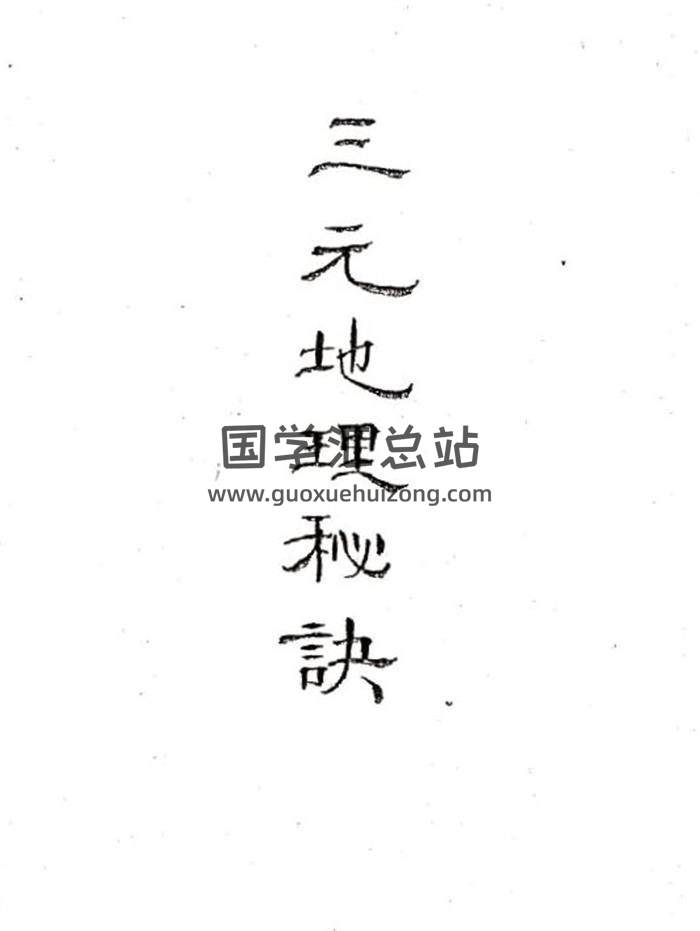 三元地理秘訣
国学汇总站
www.guoxuehuizong.com